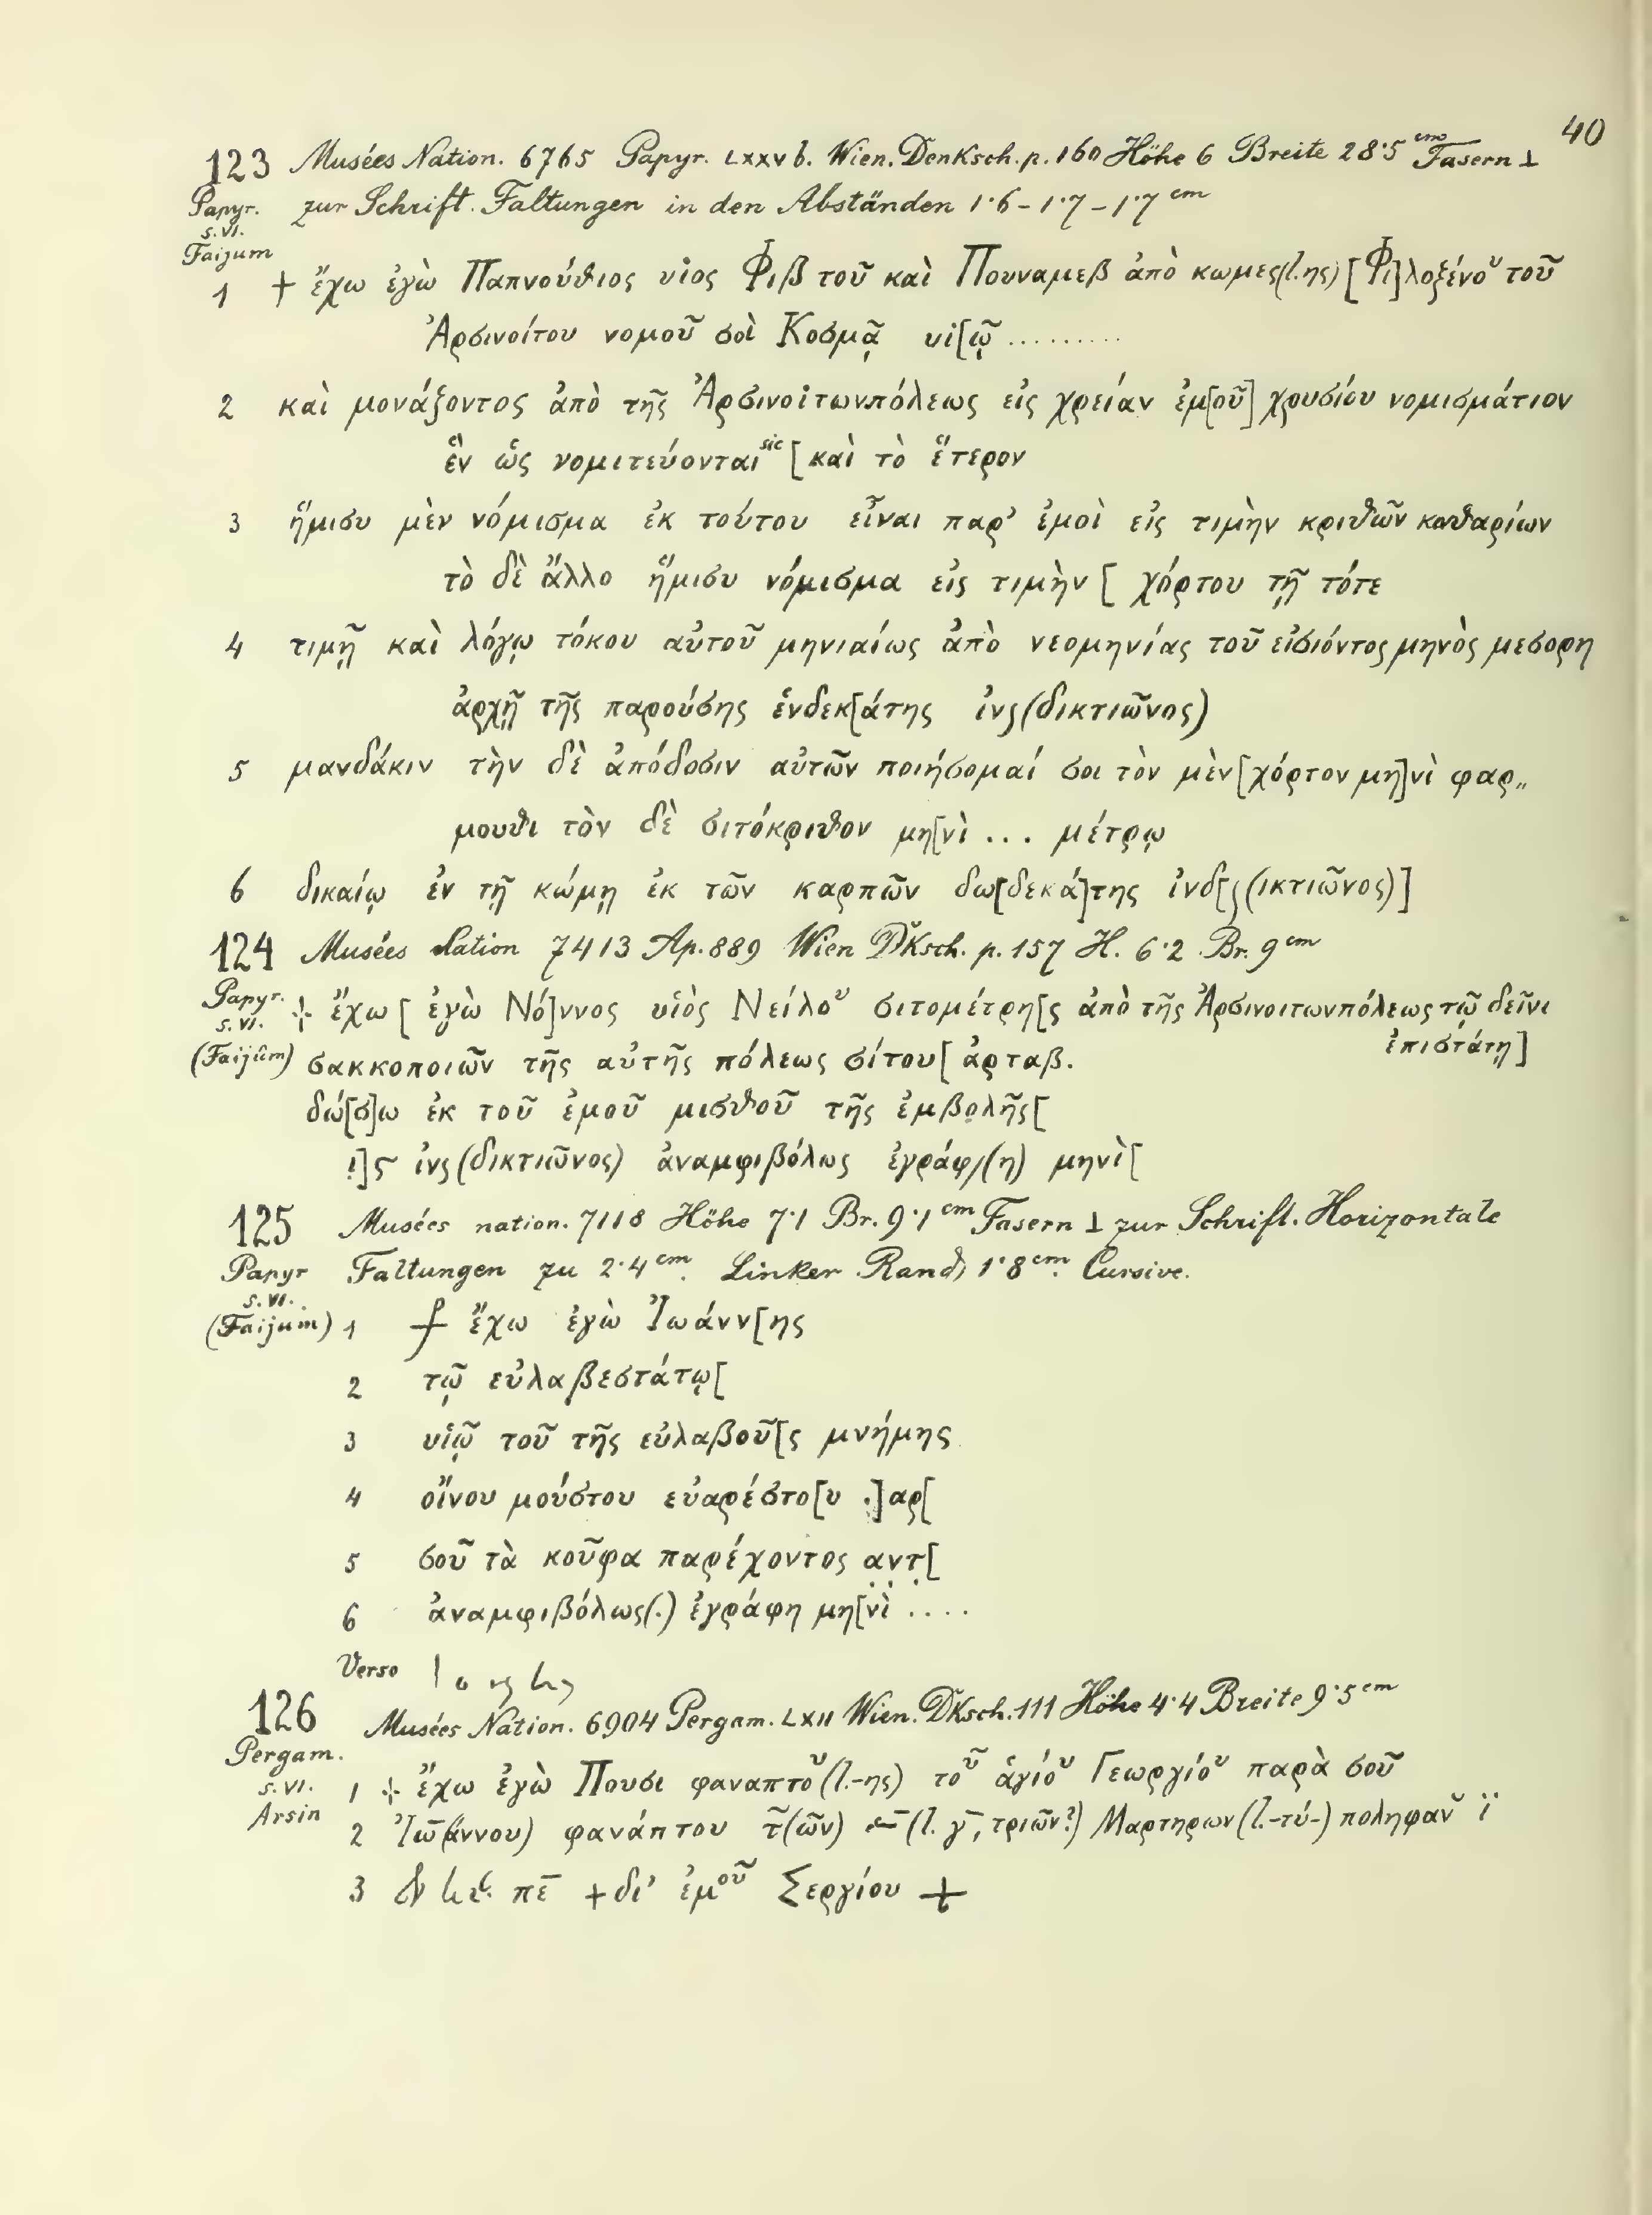 40
123 Musées Nation. 6765 Papyr. LXXV b. Wien. Denksch. p. 160 Höhe 6 Breite 28·5 cm Fasern ⊥
Papyr. zur Schrift. Faltungen in den Abständen 1·6 – 1·7 – 1·7 cm
s. VI.
Faijum
1 + ἔχω ἐγὼ Παπνούθιος υἱος Φιβ τοῦ καὶ Πουναμεβ ἀπὸ κωμες(l. ης) [Φι]λοξένου τοῦ
Ἀρσινοίτου νομοῦ σοὶ Κοσμᾷ υἱ[ῷ .........
2 καὶ μονάζοντος ἀπὸ τῆς Ἀρσινοϊτωνπόλεως εἰς χρείαν ἐμ[οῦ] χρυσίου νομισμάτιον
ἓν ὡς νομιτεύονται sic [καὶ τὸ ἕτερον
3 ἥμισυ μὲν νόμισμα ἐκ τούτου εἶναι παρ' ἐμοὶ εἰς τιμὴν κριθῶν καθαρίων
τὸ δὲ ἄλλο ἥμισυ νόμισμα εἰς τιμὴν [ χόρτου τῇ τότε
4 τιμῇ καὶ λόγῳ τόκου αὐτοῦ μηνιαίως ἀπὸ νεομηνίας τοῦ εἰσιόντος μηνὸς μεσορη
ἀρχῇ τῆς παρούσης ἑνδεκ[άτης ἰνς(δικτιῶνος)
5 μανδάκιν τὴν δὲ ἀπόδοσιν αὐτῶν ποιήσομαί σοι τὸν μὲν [χόρτον μη]νὶ φαρ„
μουθι τὸν δὲ σιτόκριθον μη[νὶ ... μέτρῳ
6 δικαίῳ ἐν τῇ κώμῃ ἐκ τῶν καρπῶν δω[δεκά]της ἰνδ[ς(ικτιῶνος)]
124 Musées Nation 7413 Ap. 889 Wien Dksch. p. 157 H. 6·2 Br. 9 cm
Papyr. ⳨ ἔχω [ ἐγὼ Νό]ννος υἱὸς Νείλου σιτομέτρη[ς ἀπὸ τῆς Ἀρσινοιτωνπόλεως τῷ δεῖνι
s. VI. ἐπιστάτῃ]
(Faijûm) σακκοποιῶν τῆς αὐτῆς πόλεως σίτου [ ἀρταβ.
δώ[σ]ω ἐκ τοῦ ἐμοῦ μισθοῦ τῆς ἐμβολῆς [
!]ς ἰνς(δικτιῶνος) ἀναμφιβόλως ἐγράφ/(η) μηνὶ [
125 Musées nation. 7118 Höhe 7·1 Br. 9·1 cm Fasern ⊥ zur Schrift. Horizontale
Papyr Faltungen zu 2·4 cm. Linker Rand 1·8 cm. Cursive.
s. VI.
(Faijum) 1 ⳨ ἔχω ἐγὼ Ἰωάνν[ης
2 τῷ εὐλαβεστάτῳ [
3 υἱῷ τοῦ τῆς εὐλαβοῦ[ς μνήμης
4 οἴνου μούστου εὐαρέστο[υ .]αρ[
5 σοῦ τὰ κοῦφα παρέχοντος αντ[
6 ἀναμφιβόλως(.) ἐγράφη μη[νὶ ....
Verso
126 Musées Nation. 6904 Pergam. LXII Wien. Dksch. 111 Höhe 4·4 Breite 9·5 cm
Pergam.
s. VI. 1 ⳨ ἔχω ἐγὼ Πουσι φαναπτοῦ (l. -ης) τοῦ ἁγίου Γεωργίου παρὰ σοῦ
Arsin
2 Ἰω(άννου) φανάπτου τ(ῶν) (l. γ̄, τριῶν?) Μαρτηρων (l. -τύ-)ποληφαν ϊ
3 πε̄ + δι' ἐμοῦ Σεργίου +